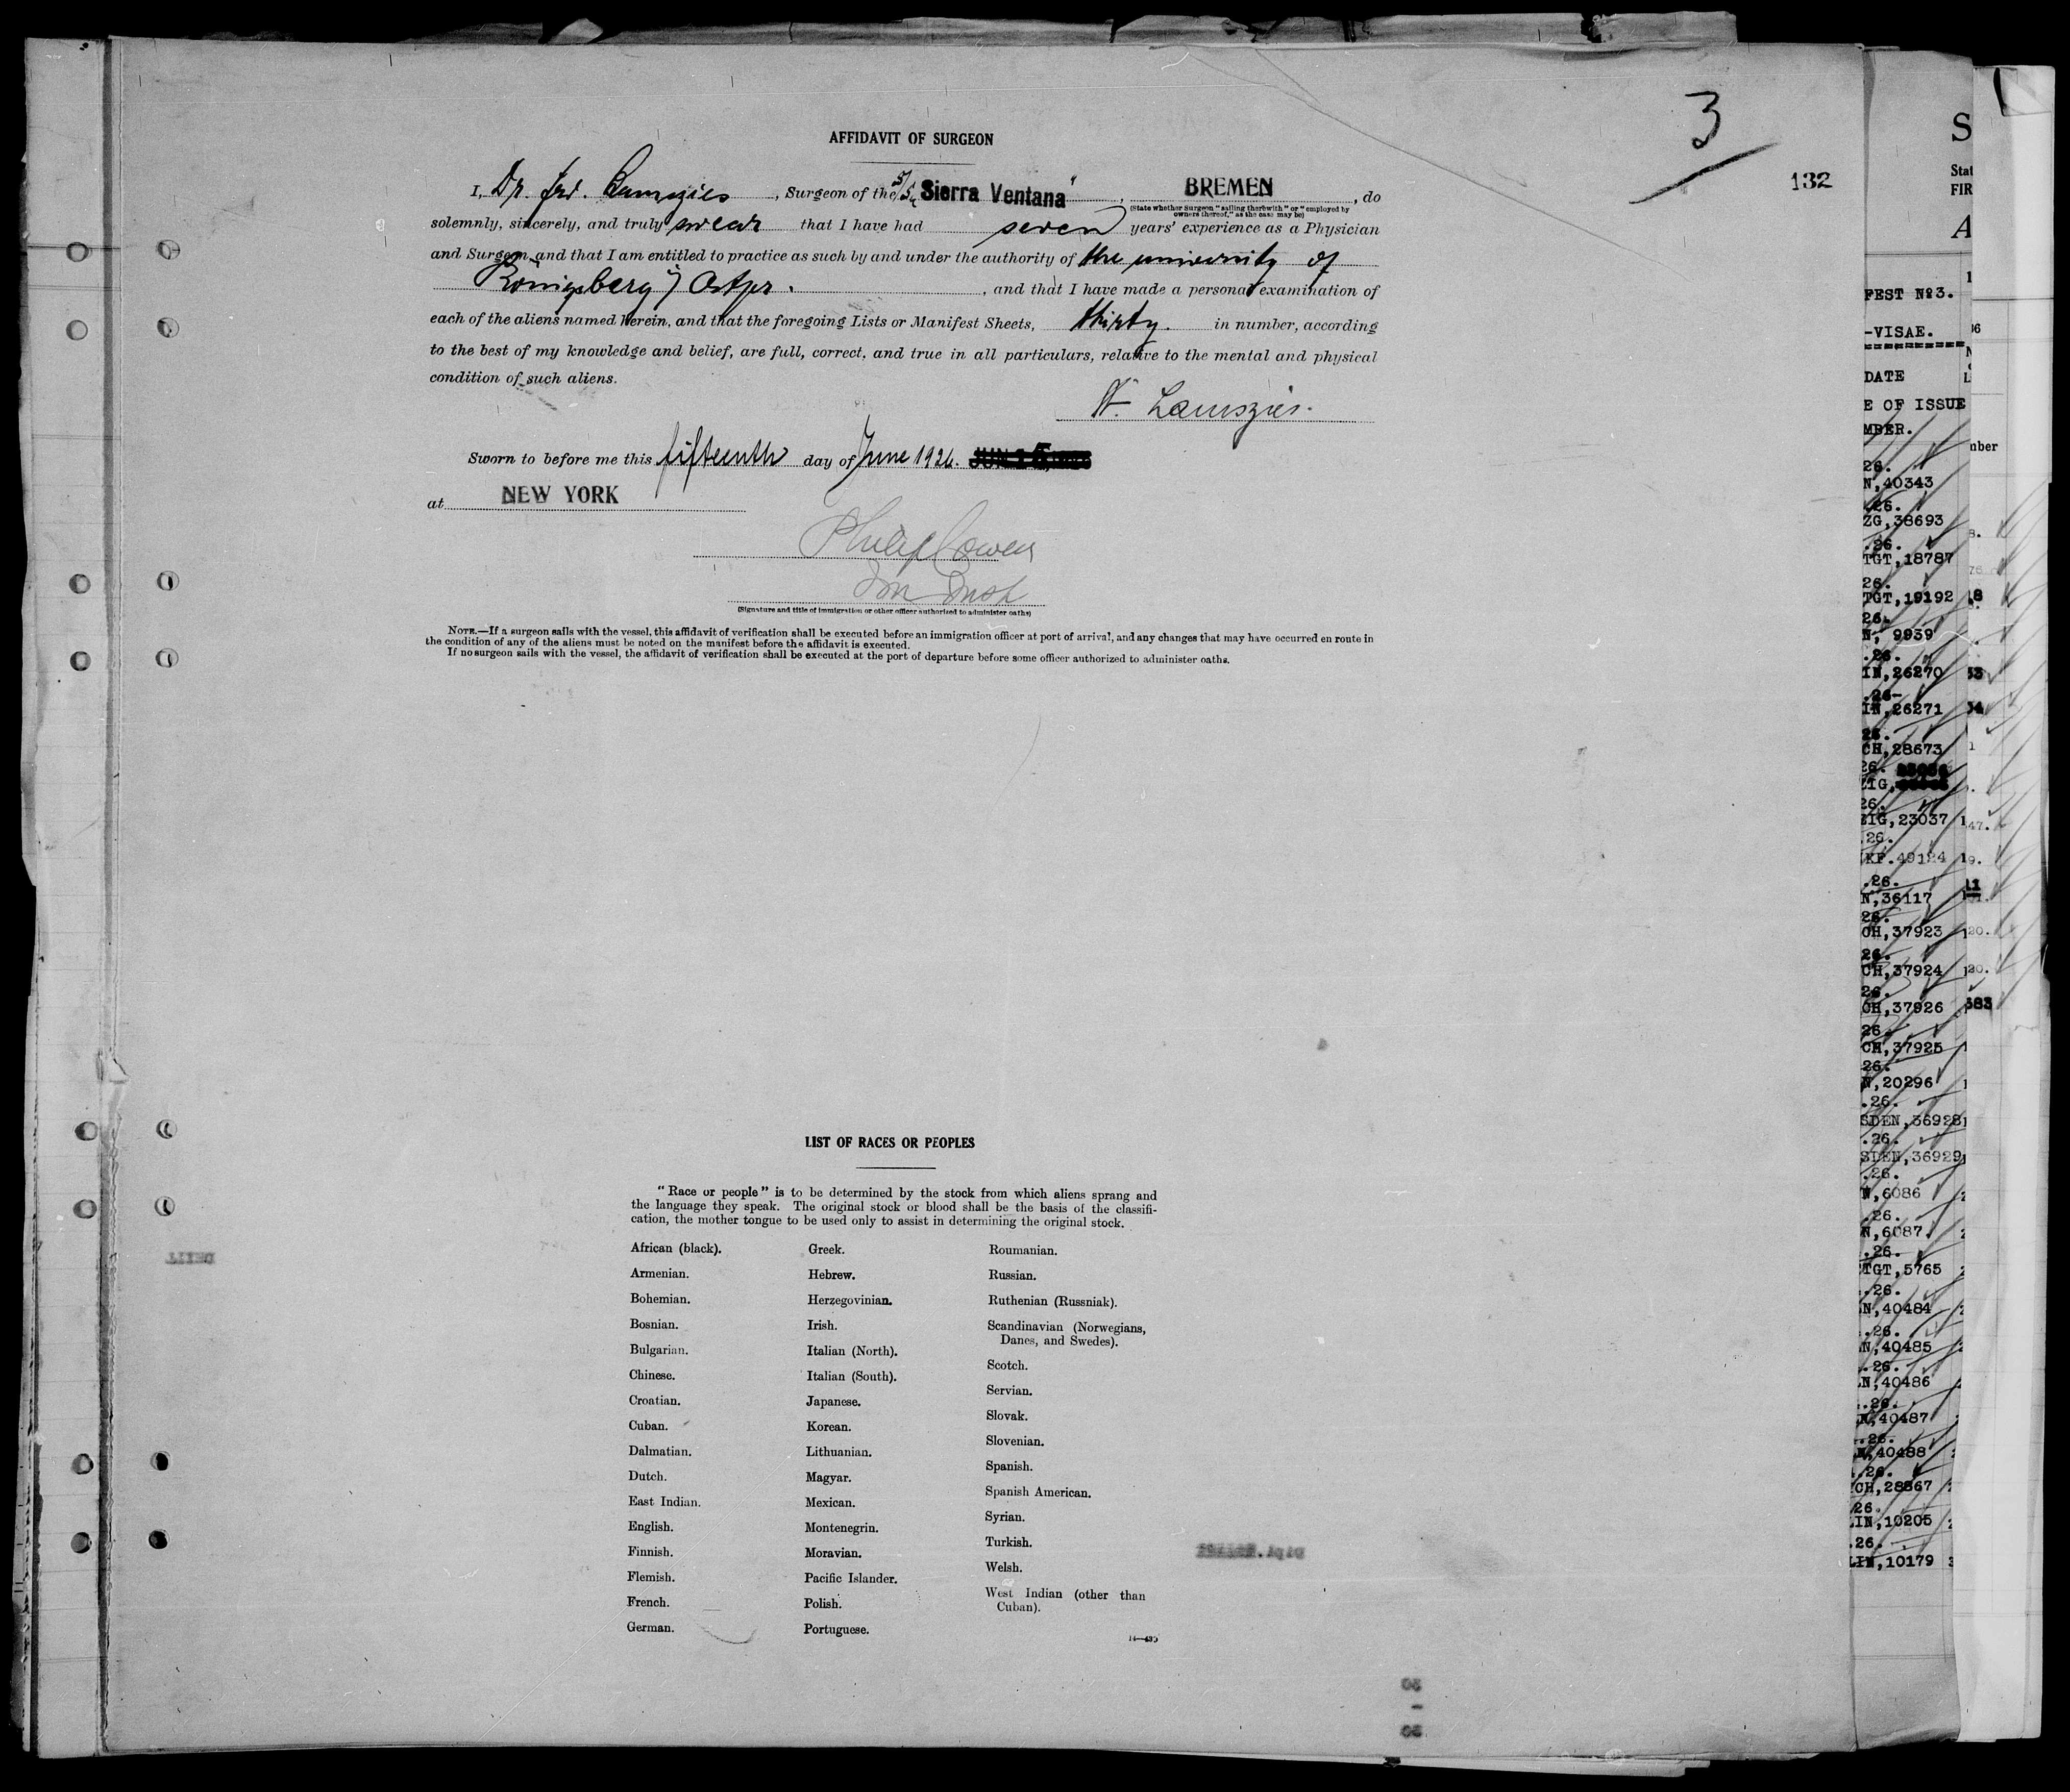 3
132
AFFIDAVIT OF SURGEON
I, Dr. , Surgeon of the S/S "Sierra Ventana", BREMEN, do
(State whether Surgeon "sailing therewith" or "employed by
owners thereof," as the case may be)
solemnly, sincerely, and truly swear that I have had seven years' experience as a Physician
and Surgeon and that I am entitled to practice as such by and under the authority of the university of
Königsberg i/ Ostpr. , and that I have made a personal examination of
each of the aliens named herein, and that the foregoing Lists or Manifest Sheets, thirty in number, according
to the best of my knowledge and belief, are full, correct, and true in all particulars, relative to the mental and physical
condition of such aliens.
Sworn to before me this fifteenth day of June 1926.
at NEW YORK
Philip Cowen
Imm Insp
(Signature and title of immigration or other officer authorized to administer oaths)
NOTE.—If a surgeon sails with the vessel, this affidavit of verification shall be executed before an immigration officer at port of arrival, and any changes that may have occurred en route in
the condition of any of the aliens must be noted on the manifest before the affidavit is executed.
If no surgeon sails with the vessel, the affidavit of verification shall be executed at the port of departure before some officer authorized to administer oaths.
LIST OF RACES OR PEOPLES
"Race or people" is to be determined by the stock from which aliens sprang and
the language they speak. The original stock or blood shall be the basis of the classifi-
cation, the mother tongue to be used only to assist in determining the original stock.
African (black).
Armenian.
Bohemian.
Bosnian.
Bulgarian.
Chinese.
Croatian.
Cuban.
Dalmatian.
Dutch.
East Indian.
English.
Finnish.
Flemish.
French.
German.
Greek.
Hebrew.
Herzegovinian.
Irish.
Italian (North).
Italian (South).
Japanese.
Korean.
Lithuanian.
Magyar.
Mexican.
Montenegrin.
Moravian.
Pacific Islander.
Polish.
Portuguese.
Roumanian.
Russian.
Ruthenian (Russniak).
Scandinavian (Norwegians,
Danes, and Swedes).
Scotch.
Servian.
Slovak.
Slovenian.
Spanish.
Spanish American.
Syrian.
Turkish.
Welsh.
West Indian (other than
Cuban).
S
Stat
FIR
A
FEST №3.
-VISAE.
DATE
E OF ISSUE
MBER.
26.
N,40343
.26.
ZG,38693
.26.
TGT,18787
26.
TGT,19192
26.
N, 9939
.26.
IN,26270
.26-
IN,26271
26.
CH,28673
26.
ZIG,
26.
ZIG,23037
.26.
KF.49124
.26.
N,36117
26.
CH,37923
26.
CH,37924
26.
CH,37926
26.
CH,37925
26.
N,20296
.26.
SDEN,36928
.26.
SDEN,36929
.26.
N,6086
.26.
N,6087
.26.
TGT,5765
.26.
N,40484
.26.
N,40485
.26.
N,40486
.26.
N,40487
.26.
N,40488
.26.
CH,28867
26.
LIN,10205
.26.
LIN,10179